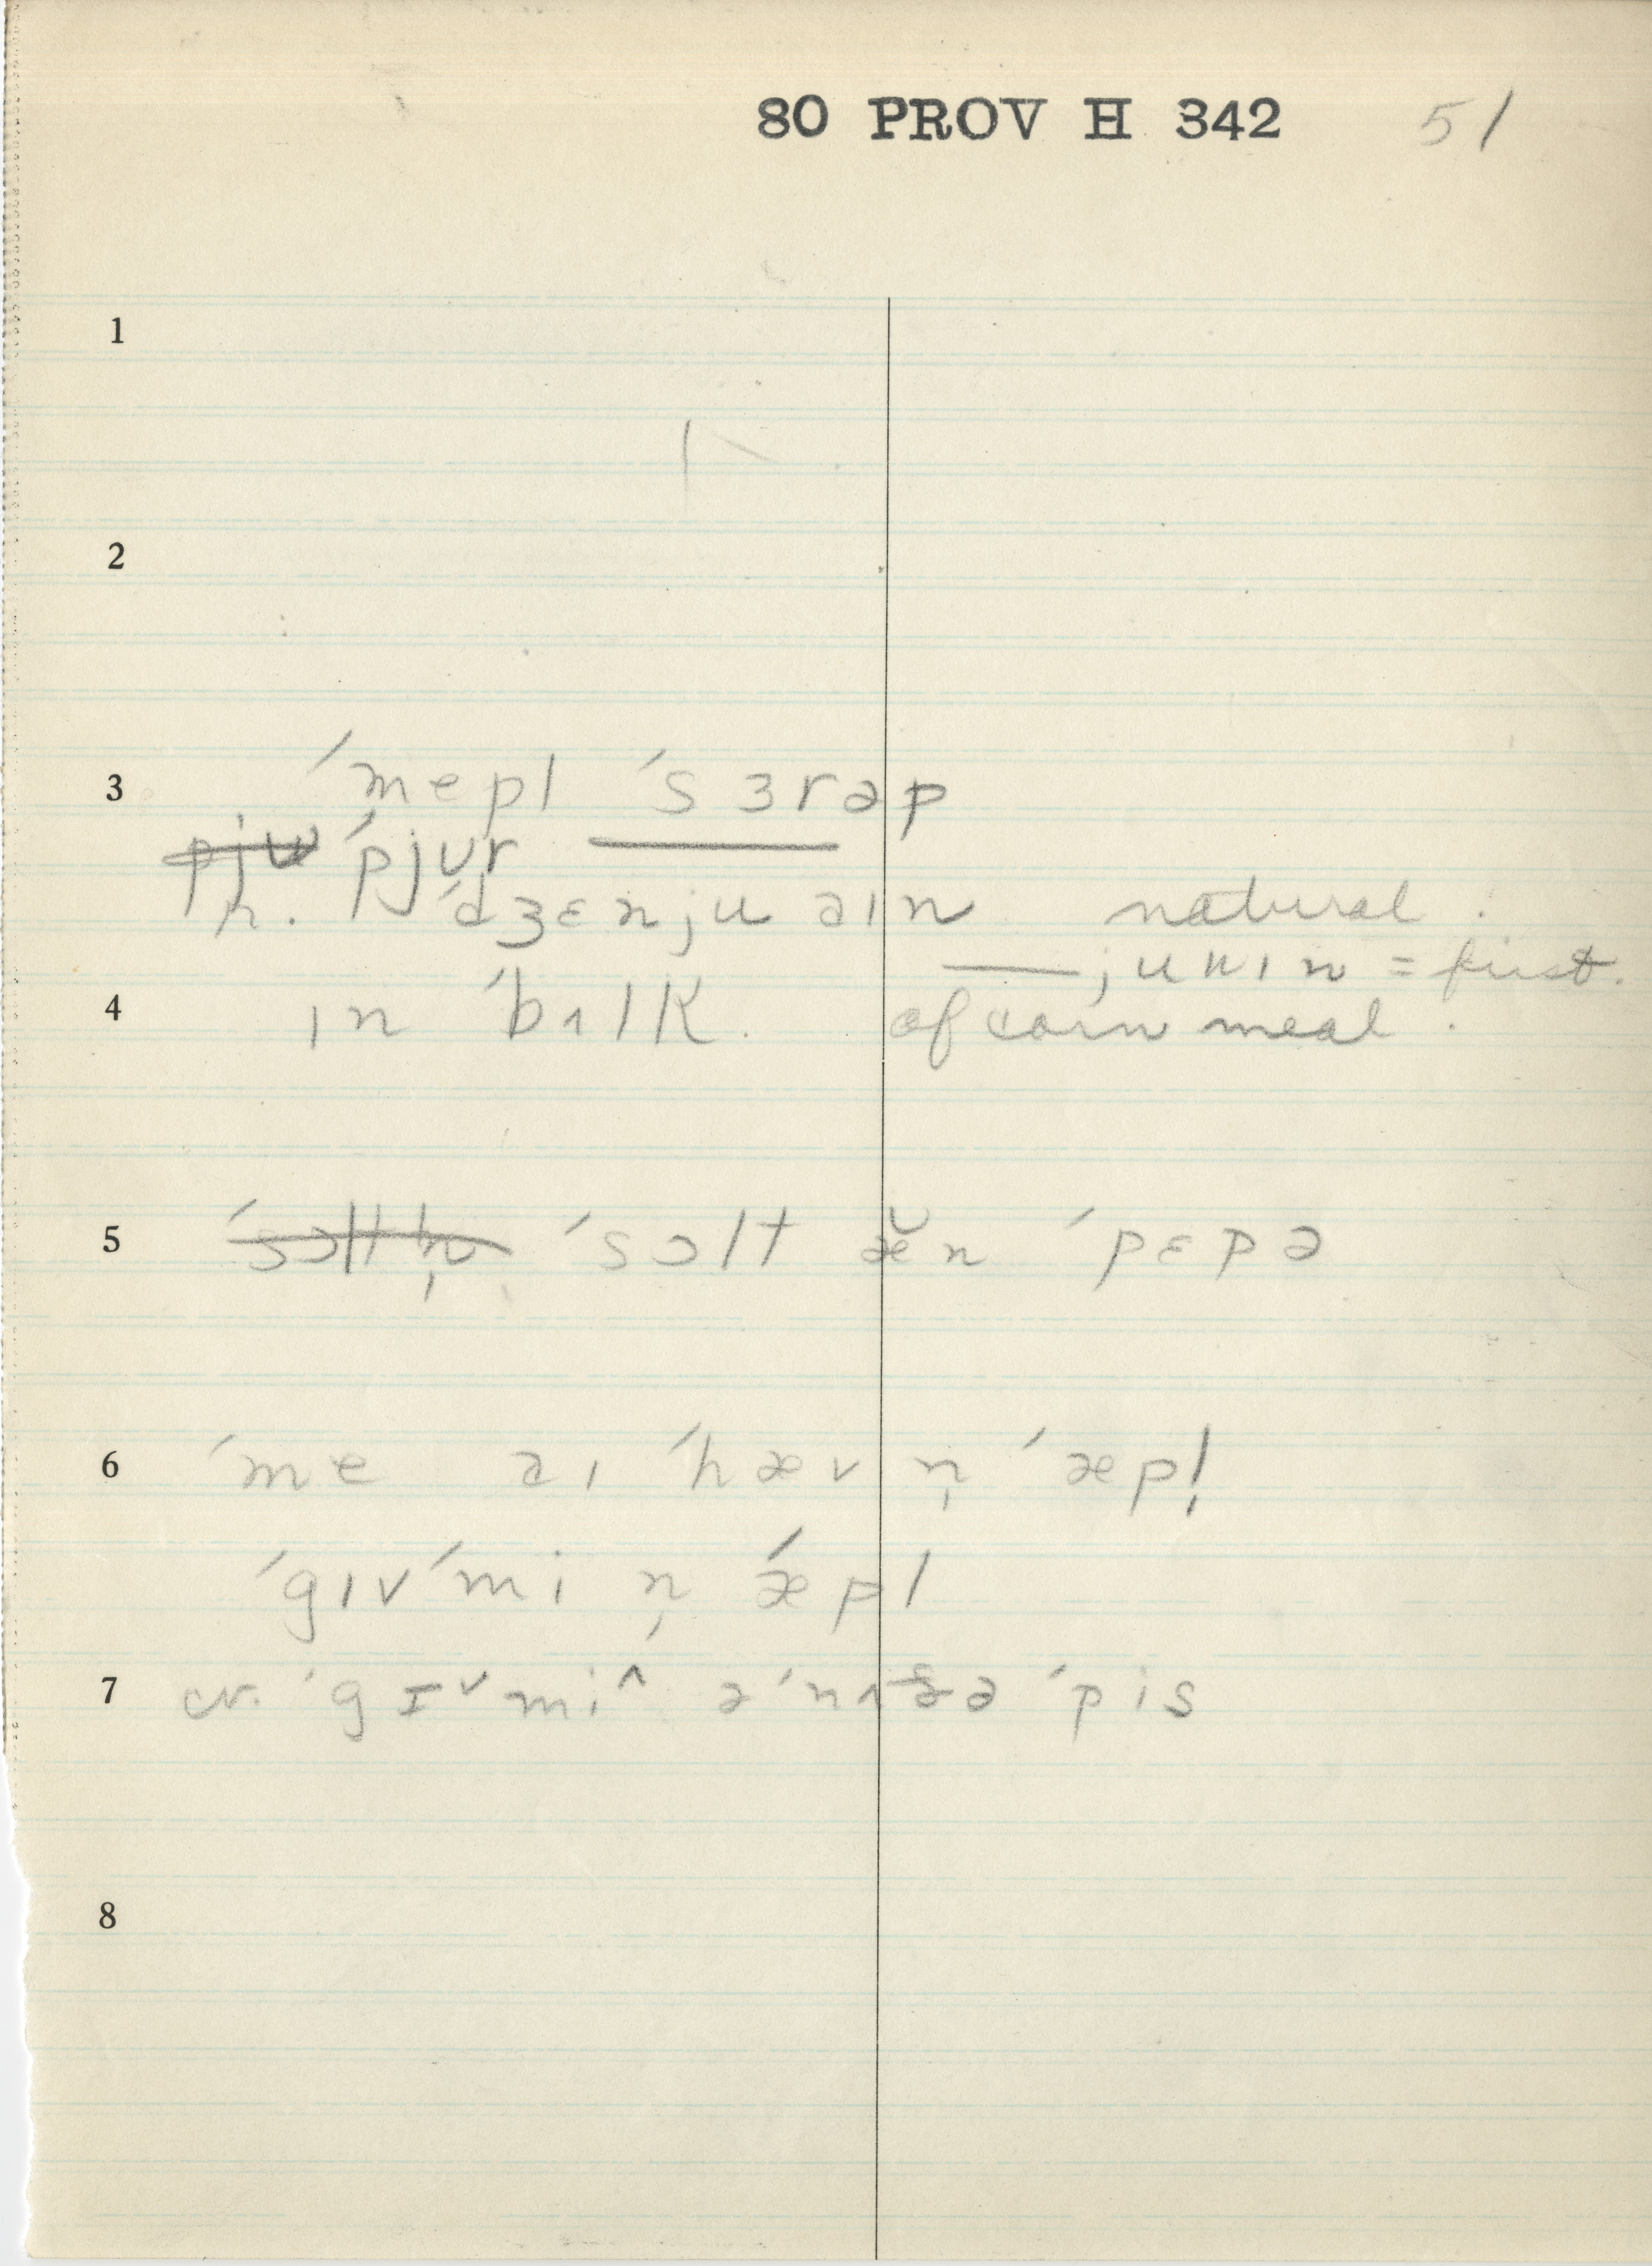 80 PROV H 342 51
1
2
3 ˊmepl ˊsɜrəp
p̶j̶u̶ ˊpjʊr ———
r. ˊdʒɛnju aɪn natural.
—— juɪn = first.
4 ɪn ˊbʌlk. of corn meal.
5 ˊs̶ɔ̶l̶t̶n̶̩ ˊsɔlt æ̆n ˊpɛpə
6 ˊme aɪ ˊhæv n̩ ˊæpl̩
ˊgɪvˊmi n̩ ǽpl
7 cr. ˊgɪ˅mi^ əˊnʌðə ˊpis
8